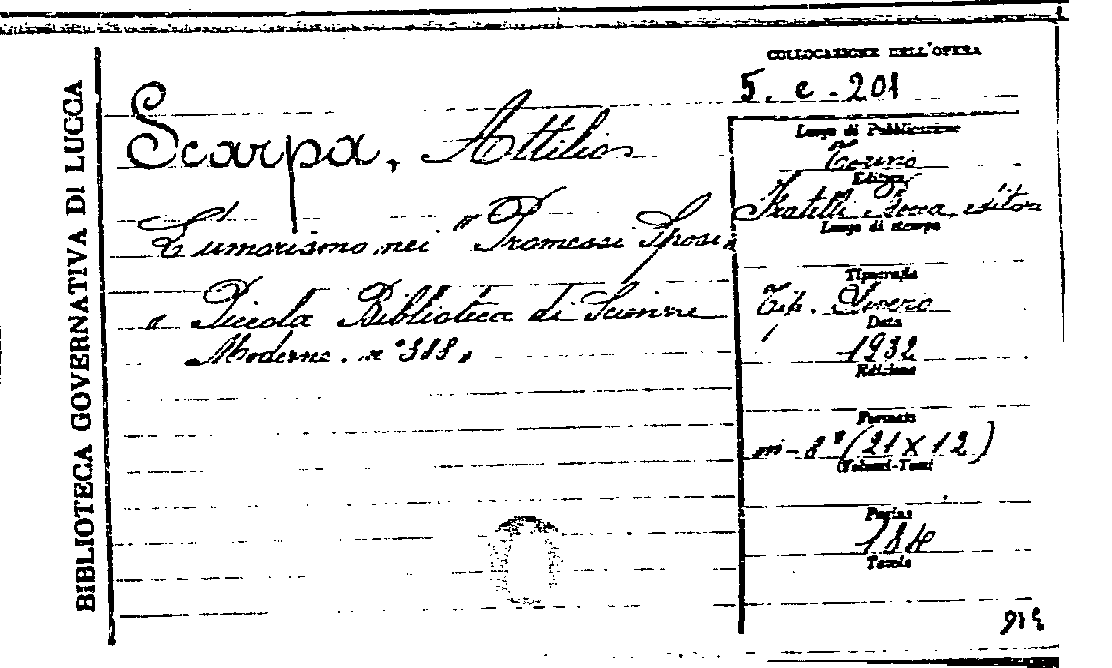 BIBLIOTECA GOVERNATIVA DI LUCCA
COLLOCAZIONE DELL'OPERA
5. c. 201
Scarpa, Attilio
L'umorismo nei "Promessi Sposi"
" Piccola Biblioteca di Scienze
Moderne. n° 388 "
Luogo di Pubblicazione
Torino
Editore
Fratelli Bocca, editori
Luogo di stampa
Tipografia
Tip.
Data
1932
Edizione
Formato
in-8° (21 X 12)
(Volumi-Tomi
Pagine
184
Tavole